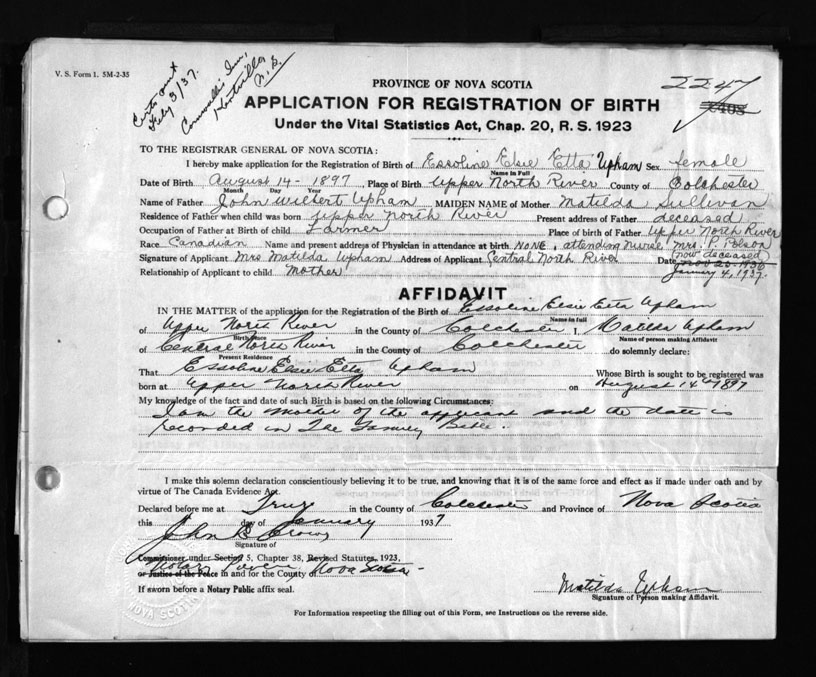 V. S. Form 1. 5M-2-35
Certs out
Feby 3/37.
Cornwallis Inn,
Kentville
N.S.
2247
PROVINCE OF NOVA SCOTIA
APPLICATION FOR REGISTRATION OF BIRTH
Under the Vital Statistics Act, Chap. 20, R. S. 1923
TO THE REGISTRAR GENERAL OF NOVA SCOTIA:
I hereby make application for the Registration of Birth of Essoline Elsie Etta Upham Sex female
Name in Full
Date of Birth August 14 - 1897, Place of Birth Upper North River County of Colchester
Month Day Year
Name of Father John Wilbert Upham MAIDEN NAME of Mother Matilda Sullivan
Residence of Father when child was born Upper North River Present address of Father deceased
Occupation of Father at Birth of child Farmer Place of birth of Father Upper North River
Race Canadian Name and present address of Physician in attendance at birth NONE, attending Nurse Mrs. P. Polson
(now deceased)
Signature of Applicant Mrs Matilda Upham Address of Applicant Central North River Date Nov 25-1936
January 4, 1937.
Relationship of Applicant to child Mother
AFFIDAVIT
IN THE MATTER of the application for the Registration of the Birth of Essoline Elsie Etta Upham
Name in full
of Upper North River in the County of Colchester I, Matilda Upham
Birth Place Name of person making Affidavit
of Central North River in the County of Colchester do solemnly declare:
Present Residence
That Essoline Elsie Etta Upham Whose Birth is sought to be registered was
born at Upper North River on August 14th 1897
My knowledge of the fact and date of such Birth is based on the following Circumstances:
I am the mother of the applicant and the date is
recorded in The Family Bible.
I make this solemn declaration conscientiously believing it to be true, and knowing that it is of the same force and effect as if made under oath and by
virtue of The Canada Evidence Act.
Declared before me at Truro in the County of Colchester and Province of Nova Scotia
this day of January 1937
John Crowe
Signature of
Commissioner under Section 5, Chapter 38, Revised Statutes, 1923,
Notary Nova Scotia -
or Justice of the Peace in and for the County of
If sworn before a Notary Public affix seal.
Matilda Upham
Signature of Person making Affidavit.
NOVA SCOTIA
For Information respecting the filling out of this Form, see Instructions on the reverse side.